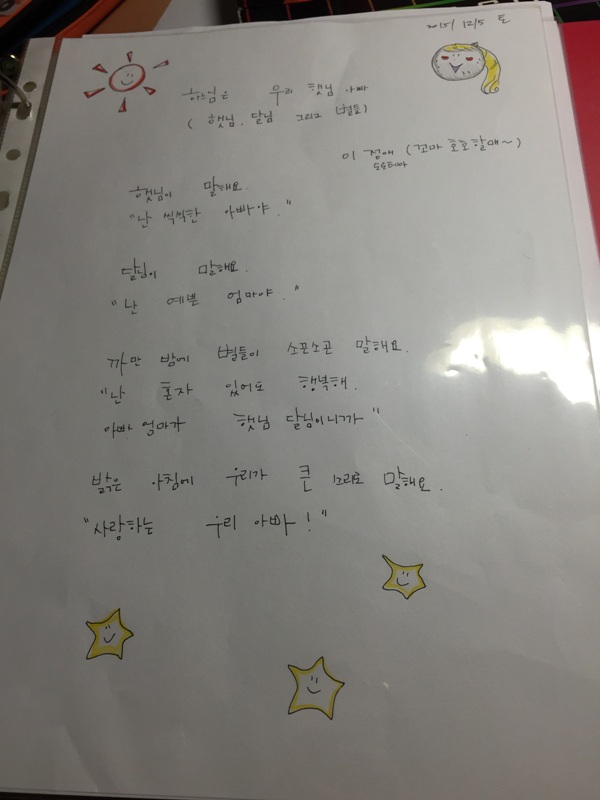 2015/12/5 토
하느님은 우리 햇님 아빠
(햇님, 달님 그리고 별들)
이 정애 (꼬마 호호할매~)
햇님이 말해요.
"난 씩씩한 아빠야."
달님이 말해요.
"난 예쁜 엄마야."
까만 밤에 별들이 소곤소곤 말해요.
"난 혼자 있어도 행복해.
아빠 엄마가 햇님 달님이니까"
밝은 아침에 우리가 큰 소리로 말해요.
"사랑하는 우리 아빠!"